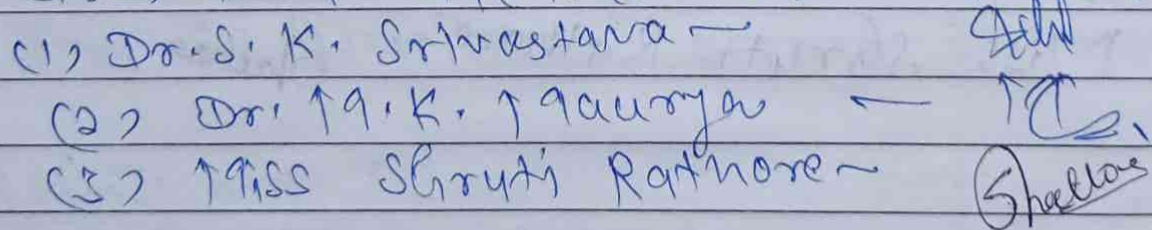 (1) Dr. S. K. Srivastava —
(2) Dr. M. K. Maurya —
(3) Miss Shruti Rathore —